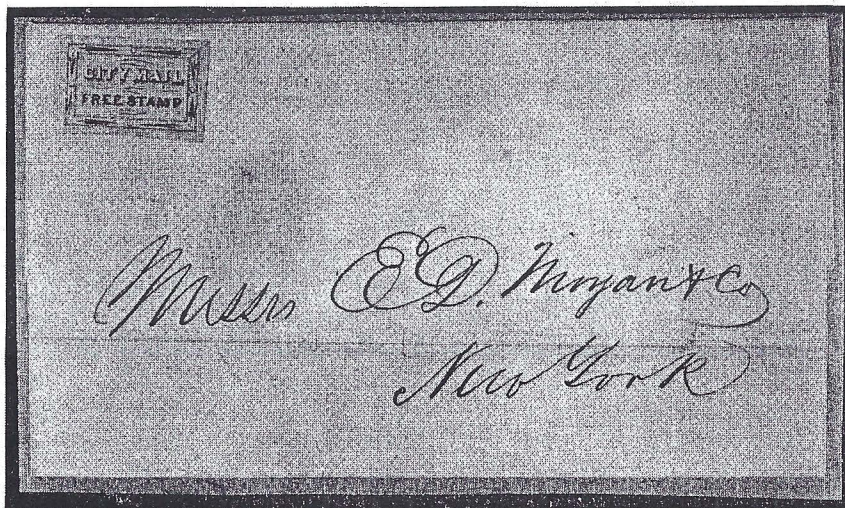 CITY MAIL
FREE STAMP
Messrs E.D. Morgan & Co
New York